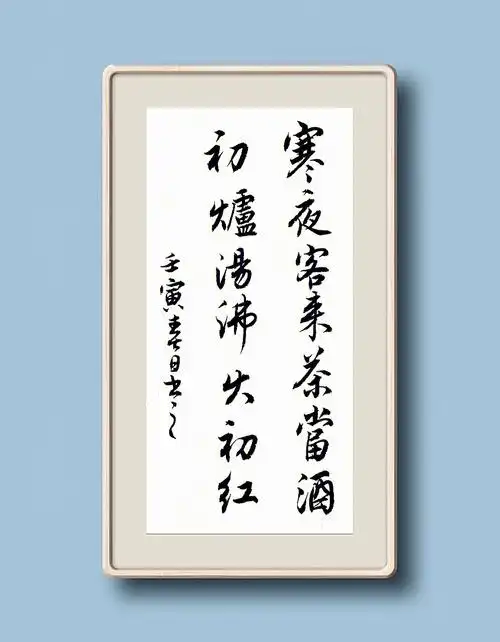 寒夜客来茶當酒
初爐湯沸火初红
壬寅春日书之